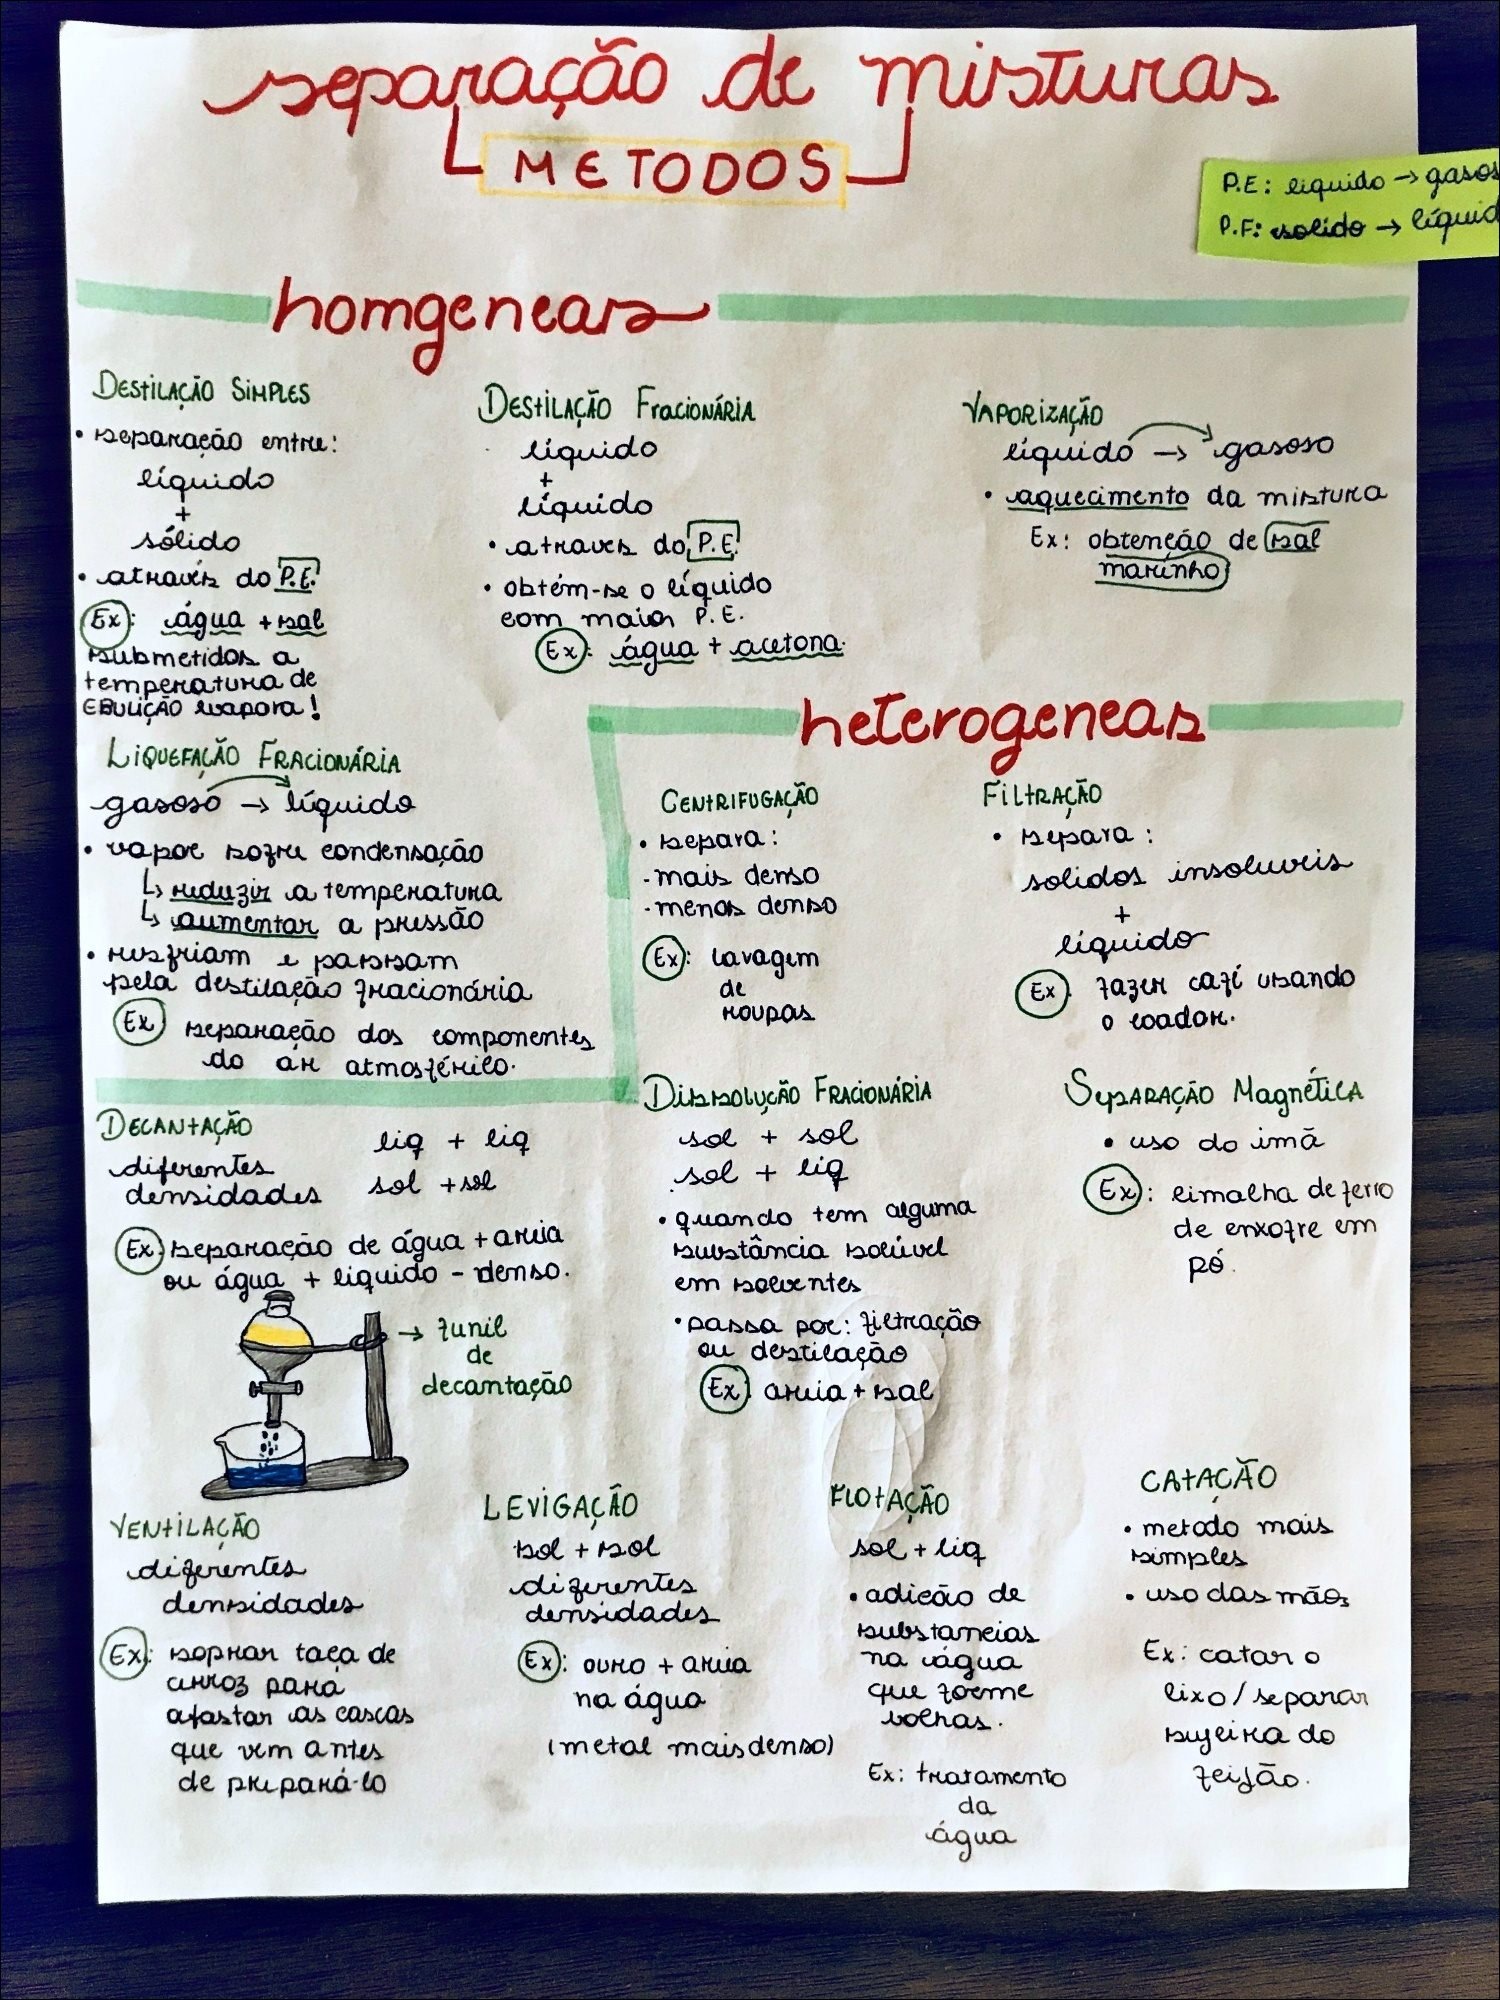 separação de misturas
METODOS
P.E: líquido → gasos
P.F: solido → líquid
homgeneas
DEStILAÇÃO SIMPLES
• separação entre:
líquido
+
sólido
• através do P.E.
Ex: água + sal
submetidos a
temperatura de
EBULIÇÃO evapora!
DEStILAÇÃO FracioNÁRIA
líquido
+
líquido
• atraves do P.E.
• obtém-se o líquido
com maior P.E.
Ex: água + acetona.
VAPORIZAÇÃO
líquido → gasoso
• aquecimento da mistura
Ex: obtenção de sal
marinho
LIQUEFAÇÃO FRACIONÁRIA
gasoso → líquido
• vapor sofre condensação
↳ reduzir a temperatura
↳ aumentar a pressão
• resfriam e passam
pela destilação fracionária
Ex separação dos componentes
do ar atmosférico.
heterogeneas
CENTRIFUGAÇÃO
• separa:
- mais denso
- menos denso
Ex: lavagem
de
roupas
FILtRAÇÃO
• separa:
solidos insoluveis
+
líquido
Ex: fazer café usando
o coador.
DECANtAÇÃO
diferentes
densidades
liq + liq
sol + sol
Ex: separação de água + areia
ou água + liquido - denso.
→ funil
de
decantação
Dissolução FRACIONÁRIA
sol + sol
sol + liq
• quando tem alguma
substância solúvel
em solventes
• passa por: filtração
ou destilação
Ex: areia + sal
SepARAÇÃO MagNÉTICA
• uso do imã
Ex: limalha de ferro
de enxofre em
pó.
VENtILAÇÃO
diferentes
densidades
Ex: soprar taça de
arroz para
afastar as cascas
que vem antes
de prepará-lo
LEVIGAÇÃO
sol + sol
diferentes
densidades
Ex: ouro + areia
na água
(metal mais denso)
FLOtAÇÃO
sol + liq
• adição de
substancias
na água
que forme
bolhas.
Ex: tratamento
da
água
CAtAÇÃO
• metodo mais
simples
• uso das mãos
Ex: catar o
lixo / separar
sujeira do
feijão.